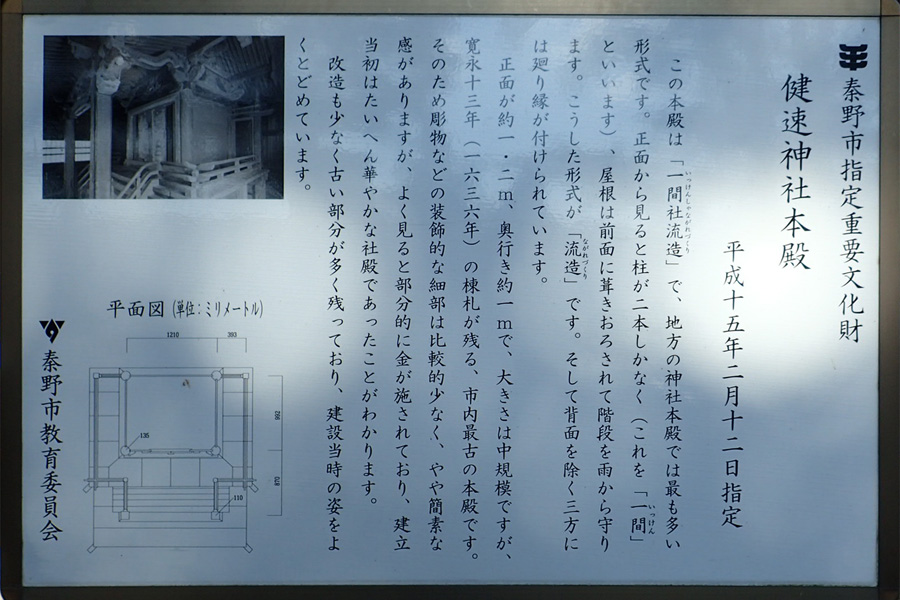 秦野市指定重要文化財
健速神社本殿
平成十五年二月十二日指定
この本殿は「一間社流造」で、地方の神社本殿では最も多い
いっけんしゃながれづくり
形式です。正面から見ると柱が二本しかなく（これを「一間」
いっけん
といいます）、屋根は前面に葺きおろされて階段を雨から守り
ます。こうした形式が「流造」です。そして背面を除く三方に
ながれづくり
は廻り縁が付けられています。
正面が約一・二m、奥行き約一mで、大きさは中規模ですが、
寛永十三年（一六三六年）の棟札が残る、市内最古の本殿です。
そのため彫物などの装飾的な細部は比較的少なく、やや簡素な
感がありますが、よく見ると部分的に金が施されており、建立
当初はたいへん華やかな社殿であったことがわかります。
改造も少なく古い部分が多く残っており、建設当時の姿をよ
くとどめています。
平面図（単位：ミリメートル）
1210
393
135
110
870
秦野市教育委員会